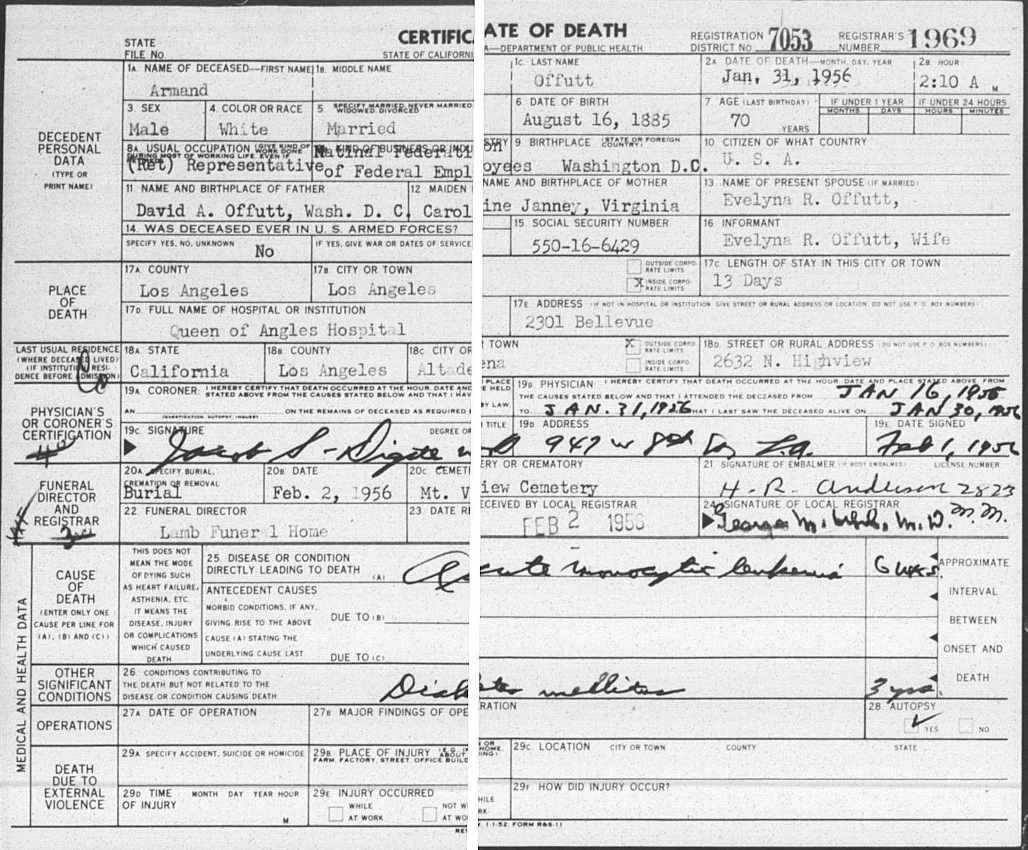 STATE FILE NO.
CERTIFICATE OF DEATH
STATE OF CALIFORNIA—DEPARTMENT OF PUBLIC HEALTH
REGISTRATION DISTRICT NO 7053
REGISTRAR'S NUMBER 1969
DECEDENT PERSONAL DATA (TYPE OR PRINT NAME)
1A NAME OF DECEASED—FIRST NAME
Armand
1B MIDDLE NAME
1C. LAST NAME
Offutt
2A DATE OF DEATH—MONTH, DAY, YEAR
Jan, 31, 1956
2B HOUR
2:10 A M
3. SEX
Male
4. COLOR OR RACE
White
5 SPECIFY MARRIED, NEVER MARRIED, WIDOWED, DIVORCED
Married
6 DATE OF BIRTH
August 16, 1885
7 AGE (LAST BIRTHDAY)
70 YEARS
IF UNDER 1 YEAR
MONTHS DAYS
IF UNDER 24 HOURS
HOURS MINUTES
8A USUAL OCCUPATION (GIVE KIND OF WORK DONE DURING MOST OF WORKING LIFE, EVEN IF
(Ret) Representative
KIND OF BUSINESS OR INDUSTRY
Natinal Federation of Federal Employees
9 BIRTHPLACE (STATE OR FOREIGN COUNTRY)
Washington D.C.
10 CITIZEN OF WHAT COUNTRY
U. S. A.
11 NAME AND BIRTHPLACE OF FATHER
David A. Offutt, Wash. D. C.
12 MAIDEN NAME AND BIRTHPLACE OF MOTHER
Caroline Janney, Virginia
13 NAME OF PRESENT SPOUSE (IF MARRIED)
Evelyna R. Offutt,
14. WAS DECEASED EVER IN U. S. ARMED FORCES?
SPECIFY YES, NO, UNKNOWN
No
IF YES, GIVE WAR OR DATES OF SERVICE
15 SOCIAL SECURITY NUMBER
550-16-6429
16 INFORMANT
Evelyna R. Offutt, Wife
PLACE OF DEATH
17A COUNTY
Los Angeles
17B CITY OR TOWN
Los Angeles
OUTSIDE CORPORATE LIMITS
X INSIDE CORPORATE LIMITS
17C LENGTH OF STAY IN THIS CITY OR TOWN
13 Days
17D FULL NAME OF HOSPITAL OR INSTITUTION
Queen of Angles Hospital
17E ADDRESS (IF NOT IN HOSPITAL OR INSTITUTION GIVE STREET OR RURAL ADDRESS OR LOCATION. DO NOT USE P. O. BOX NUMBERS)
2301 Bellevue
LAST USUAL RESIDENCE (WHERE DECEASED LIVED) (IF INSTITUTION RESIDENCE BEFORE ADMISSION)
18A STATE
California
18B COUNTY
Los Angeles
18C CITY OR TOWN
Altadena
X OUTSIDE CORPORATE LIMITS
INSIDE CORPORATE LIMITS
18D STREET OR RURAL ADDRESS (DO NOT USE P. O. BOX NUMBERS)
2632 N. Highview
PHYSICIAN'S OR CORONER'S CERTIFICATION
19A CORONER: I HEREBY CERTIFY THAT DEATH OCCURRED AT THE HOUR, DATE AND PLACE STATED ABOVE FROM THE CAUSES STATED BELOW AND THAT I HAVE HELD
AN
INVESTIGATION, AUTOPSY, INQUEST
ON THE REMAINS OF DECEASED AS REQUIRED BY LAW
19B PHYSICIAN I HEREBY CERTIFY THAT DEATH OCCURRED AT THE HOUR, DATE AND PLACE STATED ABOVE FROM
THE CAUSES STATED BELOW AND THAT I ATTENDED THE DECEASED FROM JAN 16, 1956
TO JAN. 31, 1956 THAT I LAST SAW THE DECEASED ALIVE ON JAN 30, 1956
19C SIGNATURE
Jacob S.
DEGREE OR TITLE
19D ADDRESS
947 W 8th L.A.
19E DATE SIGNED
Feb 1, 1956
FUNERAL DIRECTOR AND REGISTRAR
20A SPECIFY BURIAL, CREMATION OR REMOVAL
Burial
20B DATE
Feb. 2, 1956
20C CEMETERY OR CREMATORY
Mt. View Cemetery
21 SIGNATURE OF EMBALMER (IF BODY EMBALMED) LICENSE NUMBER
H. R. Anderson 2823
22 FUNERAL DIRECTOR
Lamb Funer l Home
23 DATE RECEIVED BY LOCAL REGISTRAR
FEB 2 1956
24 SIGNATURE OF LOCAL REGISTRAR
George M. Uhl, M.D. M.M.
MEDICAL AND HEALTH DATA
CAUSE OF DEATH (ENTER ONLY ONE CAUSE PER LINE FOR (A), (B) AND (C))
THIS DOES NOT MEAN THE MODE OF DYING SUCH AS HEART FAILURE, ASTHENIA, ETC. IT MEANS THE DISEASE, INJURY OR COMPLICATIONS WHICH CAUSED DEATH
25 DISEASE OR CONDITION DIRECTLY LEADING TO DEATH (A)
Acute monocytic leukemia
6 wks.
ANTECEDENT CAUSES
MORBID CONDITIONS, IF ANY, GIVING RISE TO THE ABOVE CAUSE (A) STATING THE UNDERLYING CAUSE LAST
DUE TO (B)
DUE TO (C)
APPROXIMATE INTERVAL BETWEEN ONSET AND DEATH
OTHER SIGNIFICANT CONDITIONS
26 CONDITIONS CONTRIBUTING TO THE DEATH BUT NOT RELATED TO THE DISEASE OR CONDITION CAUSING DEATH
Diabetes mellitus
3 yrs.
OPERATIONS
27A DATE OF OPERATION
27B MAJOR FINDINGS OF OPERATION
28 AUTOPSY
YES NO
DEATH DUE TO EXTERNAL VIOLENCE
29A SPECIFY ACCIDENT, SUICIDE OR HOMICIDE
29B PLACE OF INJURY
FARM, FACTORY, STREET, OFFICE BUILD
29C LOCATION CITY OR TOWN COUNTY STATE
29D TIME OF INJURY MONTH DAY YEAR HOUR M
29E INJURY OCCURRED
WHILE AT WORK
NOT WHILE AT WORK
29F HOW DID INJURY OCCUR?
1-1-52 FORM R&S-11